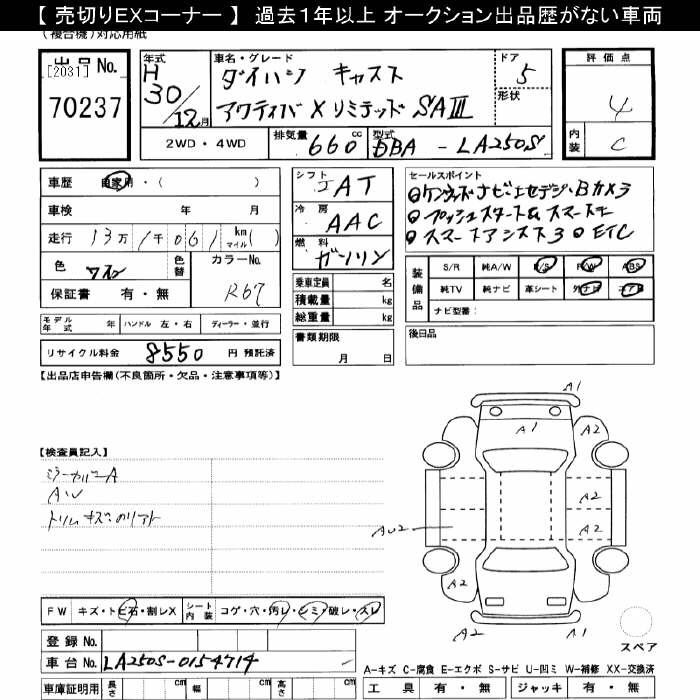 【 売切りEXコーナー 】 過去１年以上 オークション出品歴がない車両
(複合機)対応用紙
出品No. [2031] 70237
年式 H30/12月
車名・グレード ダイハツ キャスト
アクティバ X リミテッド SAⅢ
ドア 5
形状
評価点 4
内装 C
2WD・4WD
排気量 660cc
型式 DBA-LA250S
車歴 自家用・( )
車検 年 月
走行 13万1千061 km マイル( )
色 ワイン
色替
カラーNo. R67
保証書 有・無
シフト IAT
冷房 AAC
燃料 ガソリン
乗車定員 名
積載量 kg
総重量 kg
セールスポイント
◎ケンウッドナビ地デジ・Bカメラ
◎プッシュスタート&スマートキー
◎スマートアシスト3 ◎ETC
装備品
S/R 純A/W P/S P/W ABS
純TV 純ナビ 革シート 外ナビ エアB
ナビ型番:
モデル年式 年
ハンドル 左・右
ディーラー・並行
書類期限 月 日
後日品
リサイクル料金 8550 円 預託済
【出品店申告欄(不良箇所・欠品・注意事項等)】
【検査員記入】
AU
A1
A1
A2
A2
A2
AU2
A2
A2
A2
A1
FW キズ・トビ石・割レX
シート内装 コゲ・穴・汚レ・シミ・破レ・スレ
スペア
登録No.
車台No. LA250S-0154714
車庫証明用 長さ cm 幅 cm 高さ cm
A-キズ C-腐食 E-エクボ S-サビ U-凹ミ W-補修 XX-交換済
工具 有・無 ジャッキ 有・無